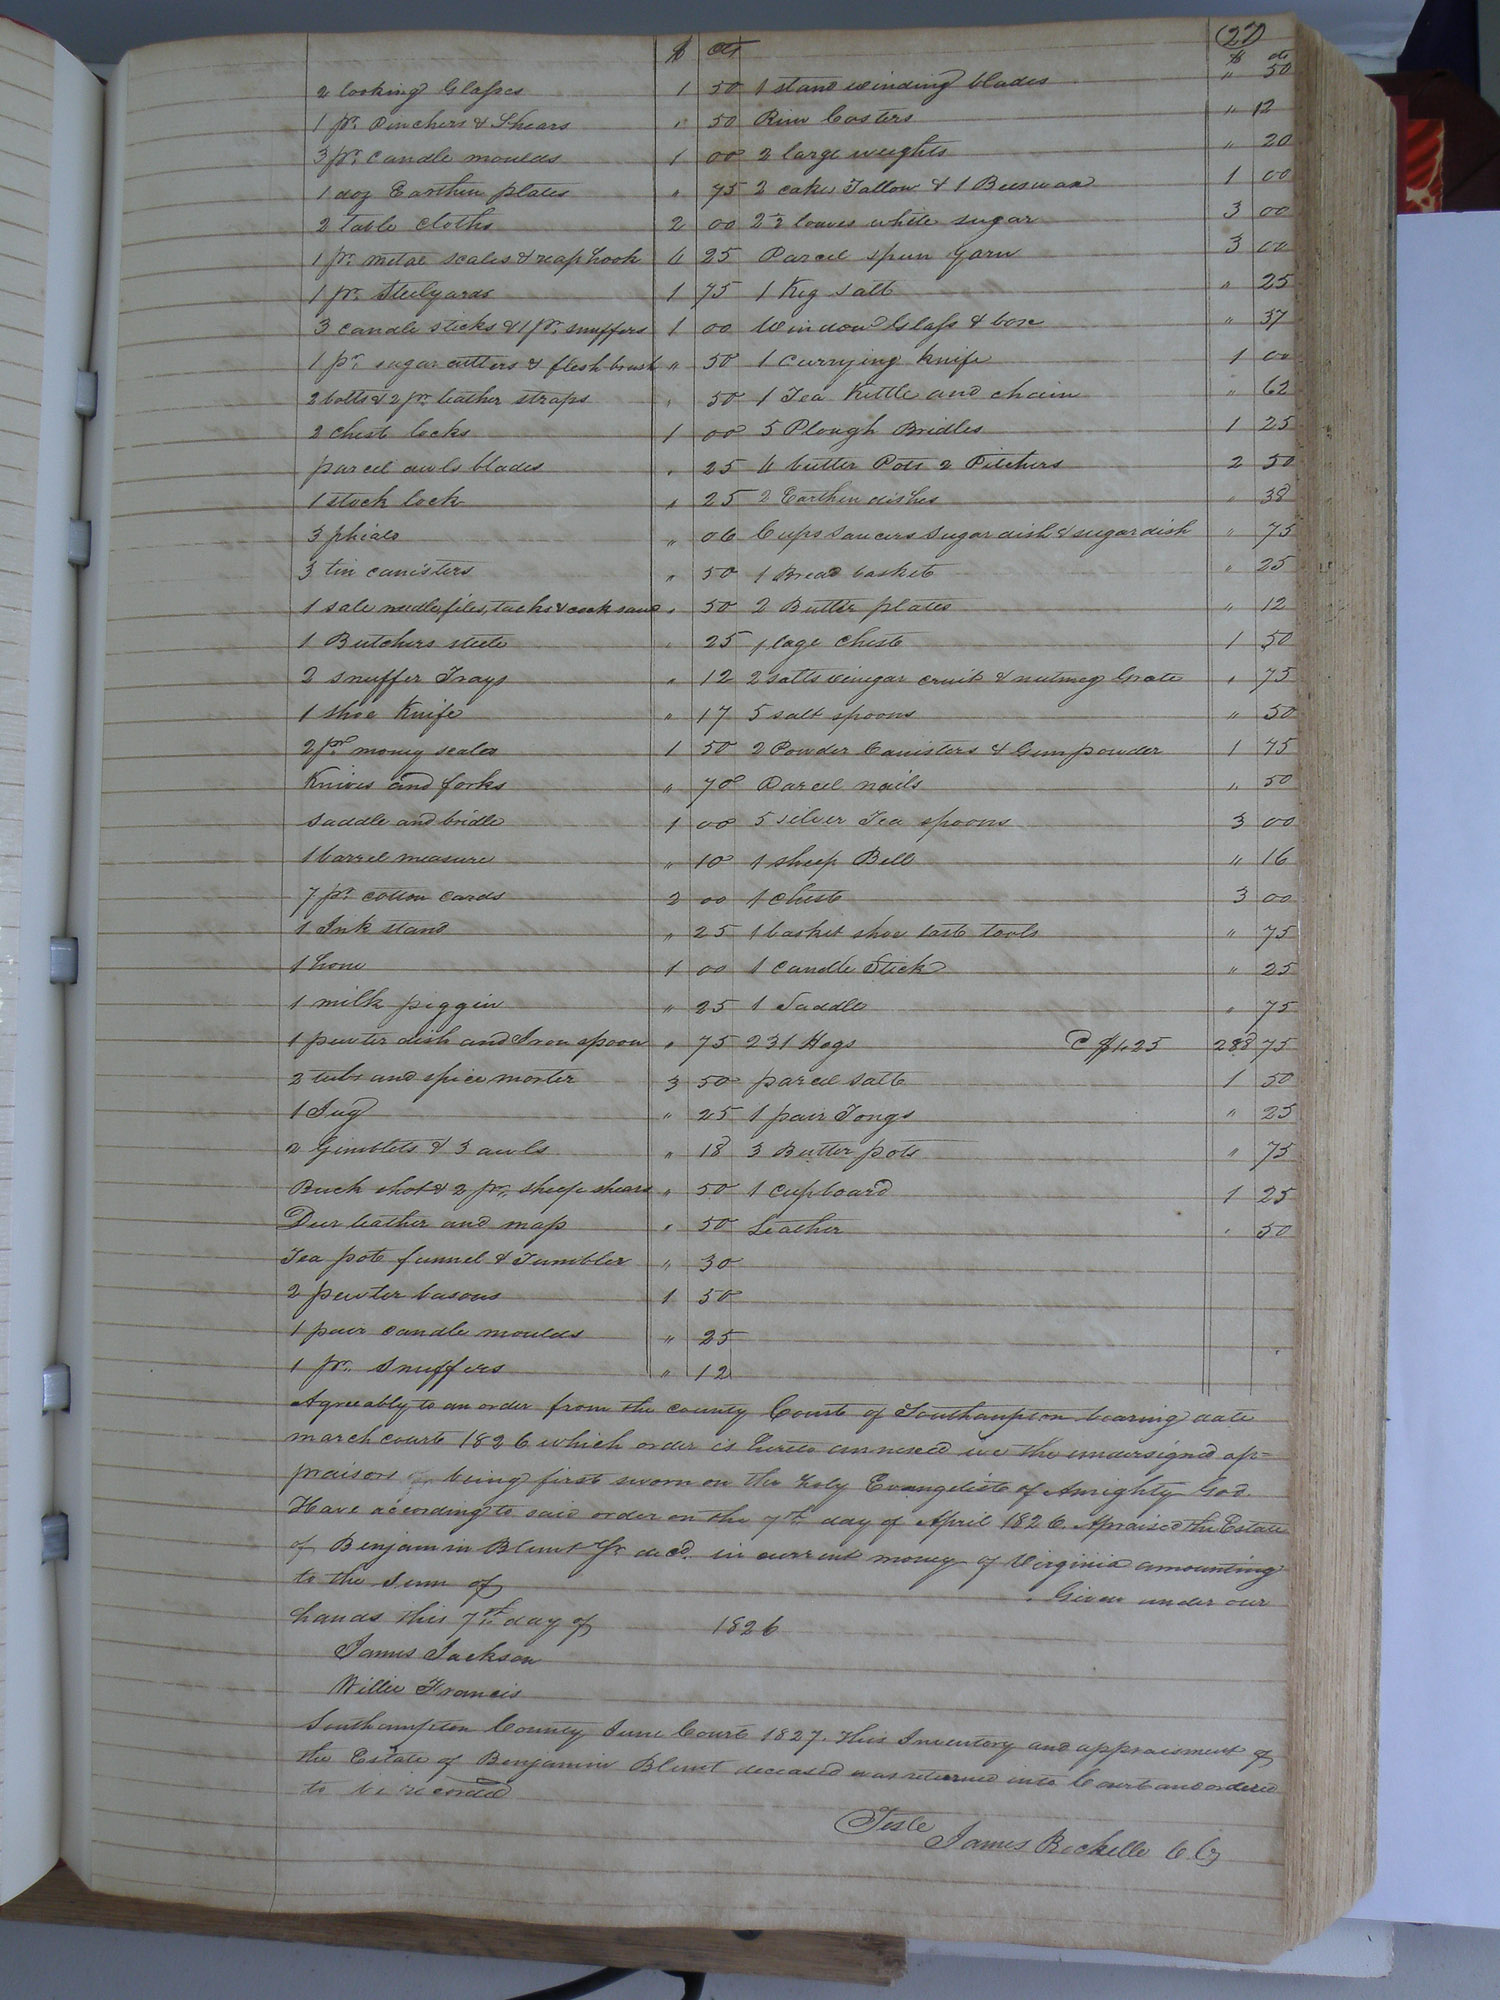 (27)
$ cts
2 looking Glasses 1 50
1 pr. Pinchers & Shears " 50
3 pr. candle moulds 1 00
1 doz Earthen plates " 75
2 table cloths 2 00
1 pr. metal scales & reap hook 4 25
1 pr. Steelyards 1 75
3 candle sticks & 1 pr. snuffers 1 00
1 pr. sugar cutters & flesh brush " 50
2 bolts & 2 pr. leather straps " 50
2 chest locks 1 00
parcel awls blades " 25
1 stock lock " 25
3 phials " 06
3 tin canisters " 50
1 sale needle files, tacks & cock saw " 50
1 Butchers steele " 25
2 snuffer Trays " 12
1 shoe Knife " 17
2 pr. money scales 1 50
Knives and forks " 70
Saddle and bridle 1 00
1 barrel measure " 10
7 pr. cotton cards 2 00
1 Ink stand " 25
1 hone 1 00
1 milk piggin " 25
1 pewter dish and Iron spoon " 75
2 tubs and spice morter 3 50
1 Jug " 25
2 Gimblets & 3 awls " 18
Buck shot & 2 pr. sheep shears " 50
Deer leather and map " 50
Tea pot funnel & Tumbler " 30
2 pewter basons 1 50
1 pair candle moulds " 25
1 pr. Snuffers " 12
$ cts
1 stand winding blades " 50
Rim Casters " 12
2 large weights " 20
2 cake Tallow & 1 Beeswax 1 00
2 1/2 loaves white sugar 3 00
Parcel spun yarn 3 00
1 Keg salt " 25
Window Glass & box " 37
1 Currying knife 1 00
1 Tea Kettle and chain " 62
5 Plough Bridles 1 25
4 butter Pots 2 Pitchers 2 50
2 Earthen dishes " 38
Cups Saucers Sugar dish & sugar dish " 75
1 Bread basket " 25
2 Butter plates " 12
1 lage Chest 1 50
2 salts vinegar cruit & nutmeg Grate " 75
5 salt spoons " 50
2 Powder Canisters & Gunpowder 1 75
Parcel nails " 50
5 silver Tea spoons 3 00
1 sheep Bell " 16
1 Chest 3 00
1 basket shoe last tools " 75
1 Candle Stick " 25
1 Saddle " 75
231 Hogs @ $1.25 288 75
parcel salt 1 50
1 pair Tongs " 25
3 Butter pots " 75
1 cupboard 1 25
Leather " 50
Agreeably to an order from the county Court of Southampton bearing date
march court 1826 which order is hereto annexed we the undersigned ap=
praisors being first sworn on the holy Evangelists of Almighty God
Have according to said order on the 7th day of April 1826. Apraised the Estate
of Benjamin Blunt Jr decd. in current money of Virginia amounting
to the sum of . Given under our
hands this 7th day of 1826
James Jackson
Willie Francis
Southampton County June Court 1827. This Inventory and appraisment of
the Estate of Benjamin Blunt deceased was returned into Court and ordered
to be recorded
Teste
James Rochelle C.C.